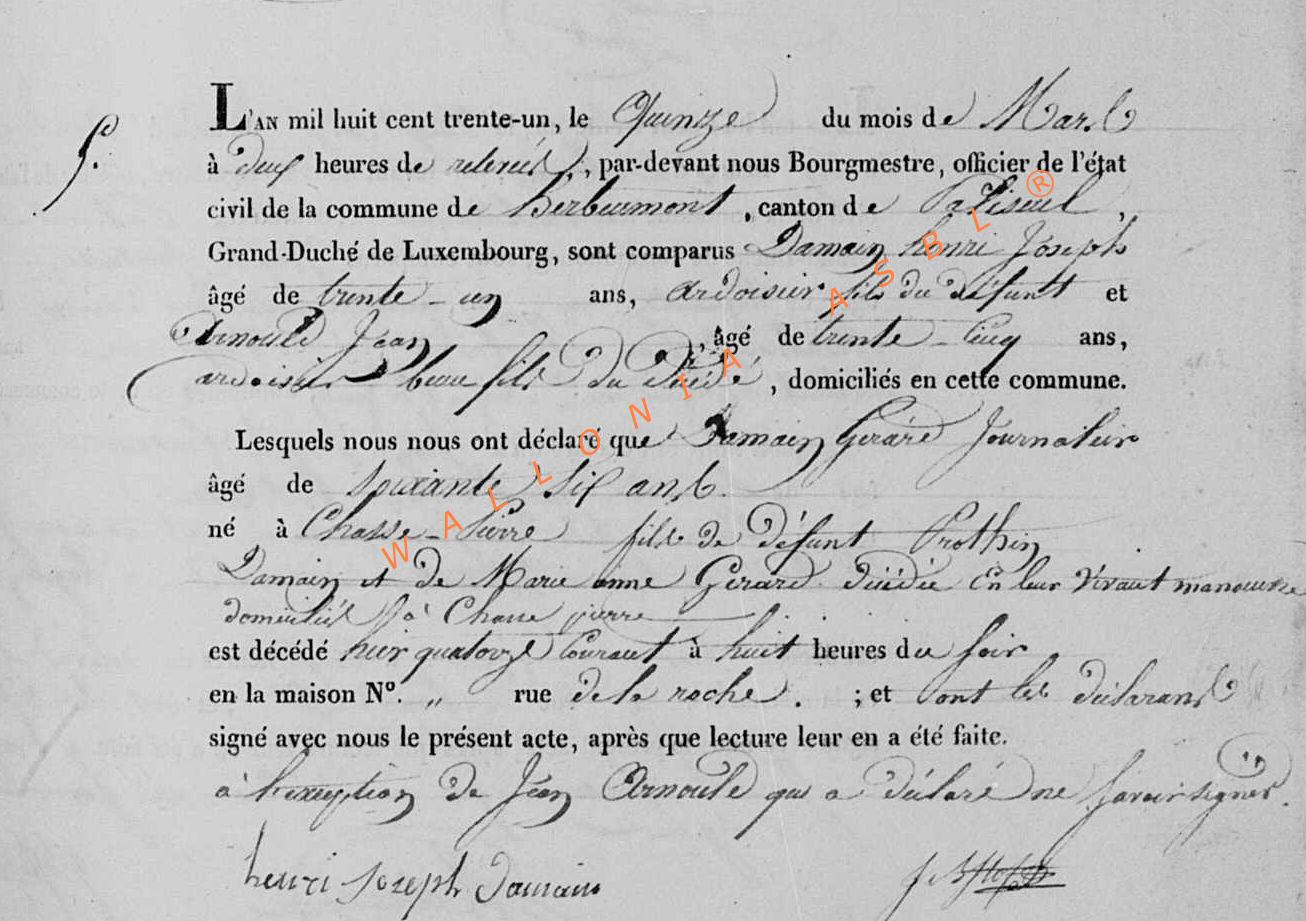 5.
L'AN mil huit cent trente-un, le Quinze du mois de Mars
à deux heures de relevée, par-devant nous Bourgmestre, officier de l'état
civil de la commune de herbeumont, canton de Paliseul,
Grand-Duché de Luxembourg, sont comparus Damain henri Joseph
âgé de trente-un ans, ardoisier fils du défunt et
Arnould Jean, âgé de trente-cinq ans,
ardoisier beau fils du décédé, domiciliés en cette commune.
Lesquels nous nous ont déclaré que Damain Gerard Journalier
âgé de soixante six ans
né à Chasse-Pierre fils de défunt Prothin
Damain et de Marie anne Gerard décédée en leur vivant manœuvre
domiciliés à Chasse pierre
est décédé hier quatorze Courant à huit heures du soir
en la maison N°. „ rue de la roche. ; et ont les déclarans
signé avec nous le présent acte, après que lecture leur en a été faite.
à l'exception de Jean Arnould qui a déclaré ne savoir signer.
henri joseph damain
WALLONIA ASBL ®